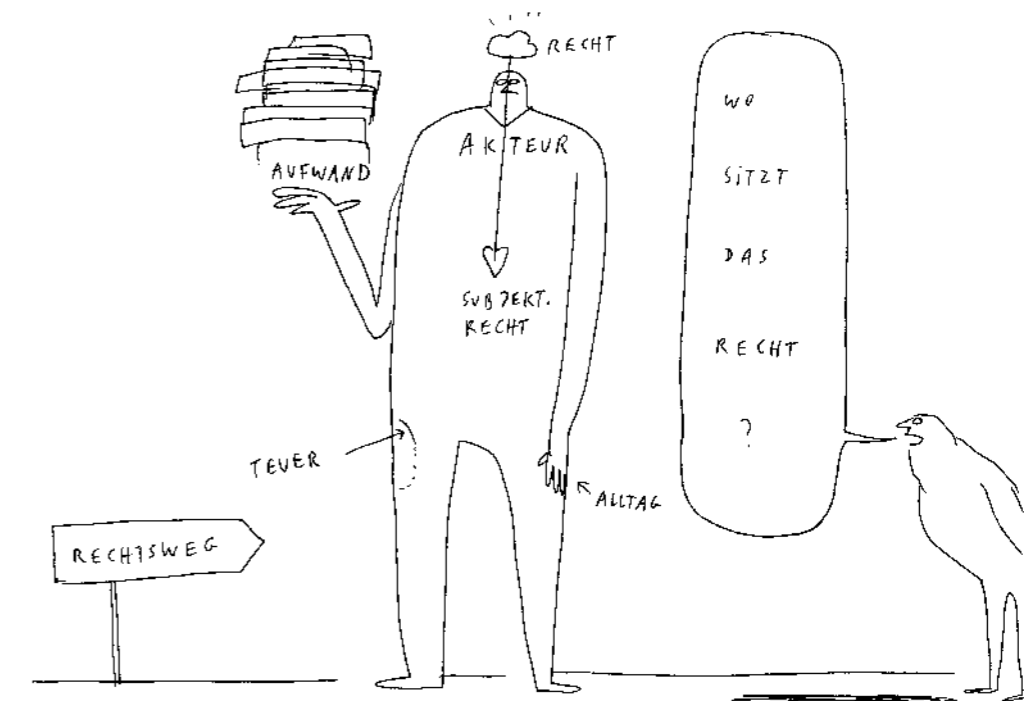 RECHT
AKTEUR
AUFWAND
SUBJEKT.
RECHT
TEUER
ALLTAG
RECHTSWEG
WO
SITZT
DAS
RECHT
?